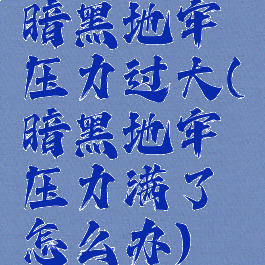 暗黑地牢
压力过大(
暗黑地牢
压力满了
怎么办)